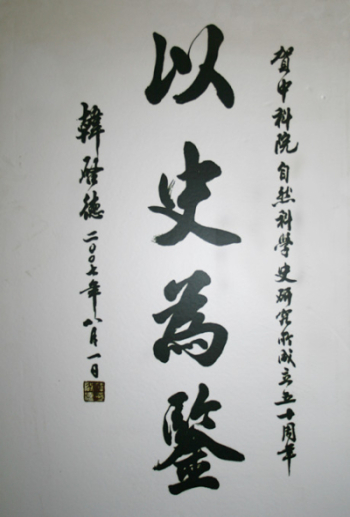 賀中科院自然科學史研究所成立五十周年
以史為鑒
韓啓德二〇〇七年八月一日